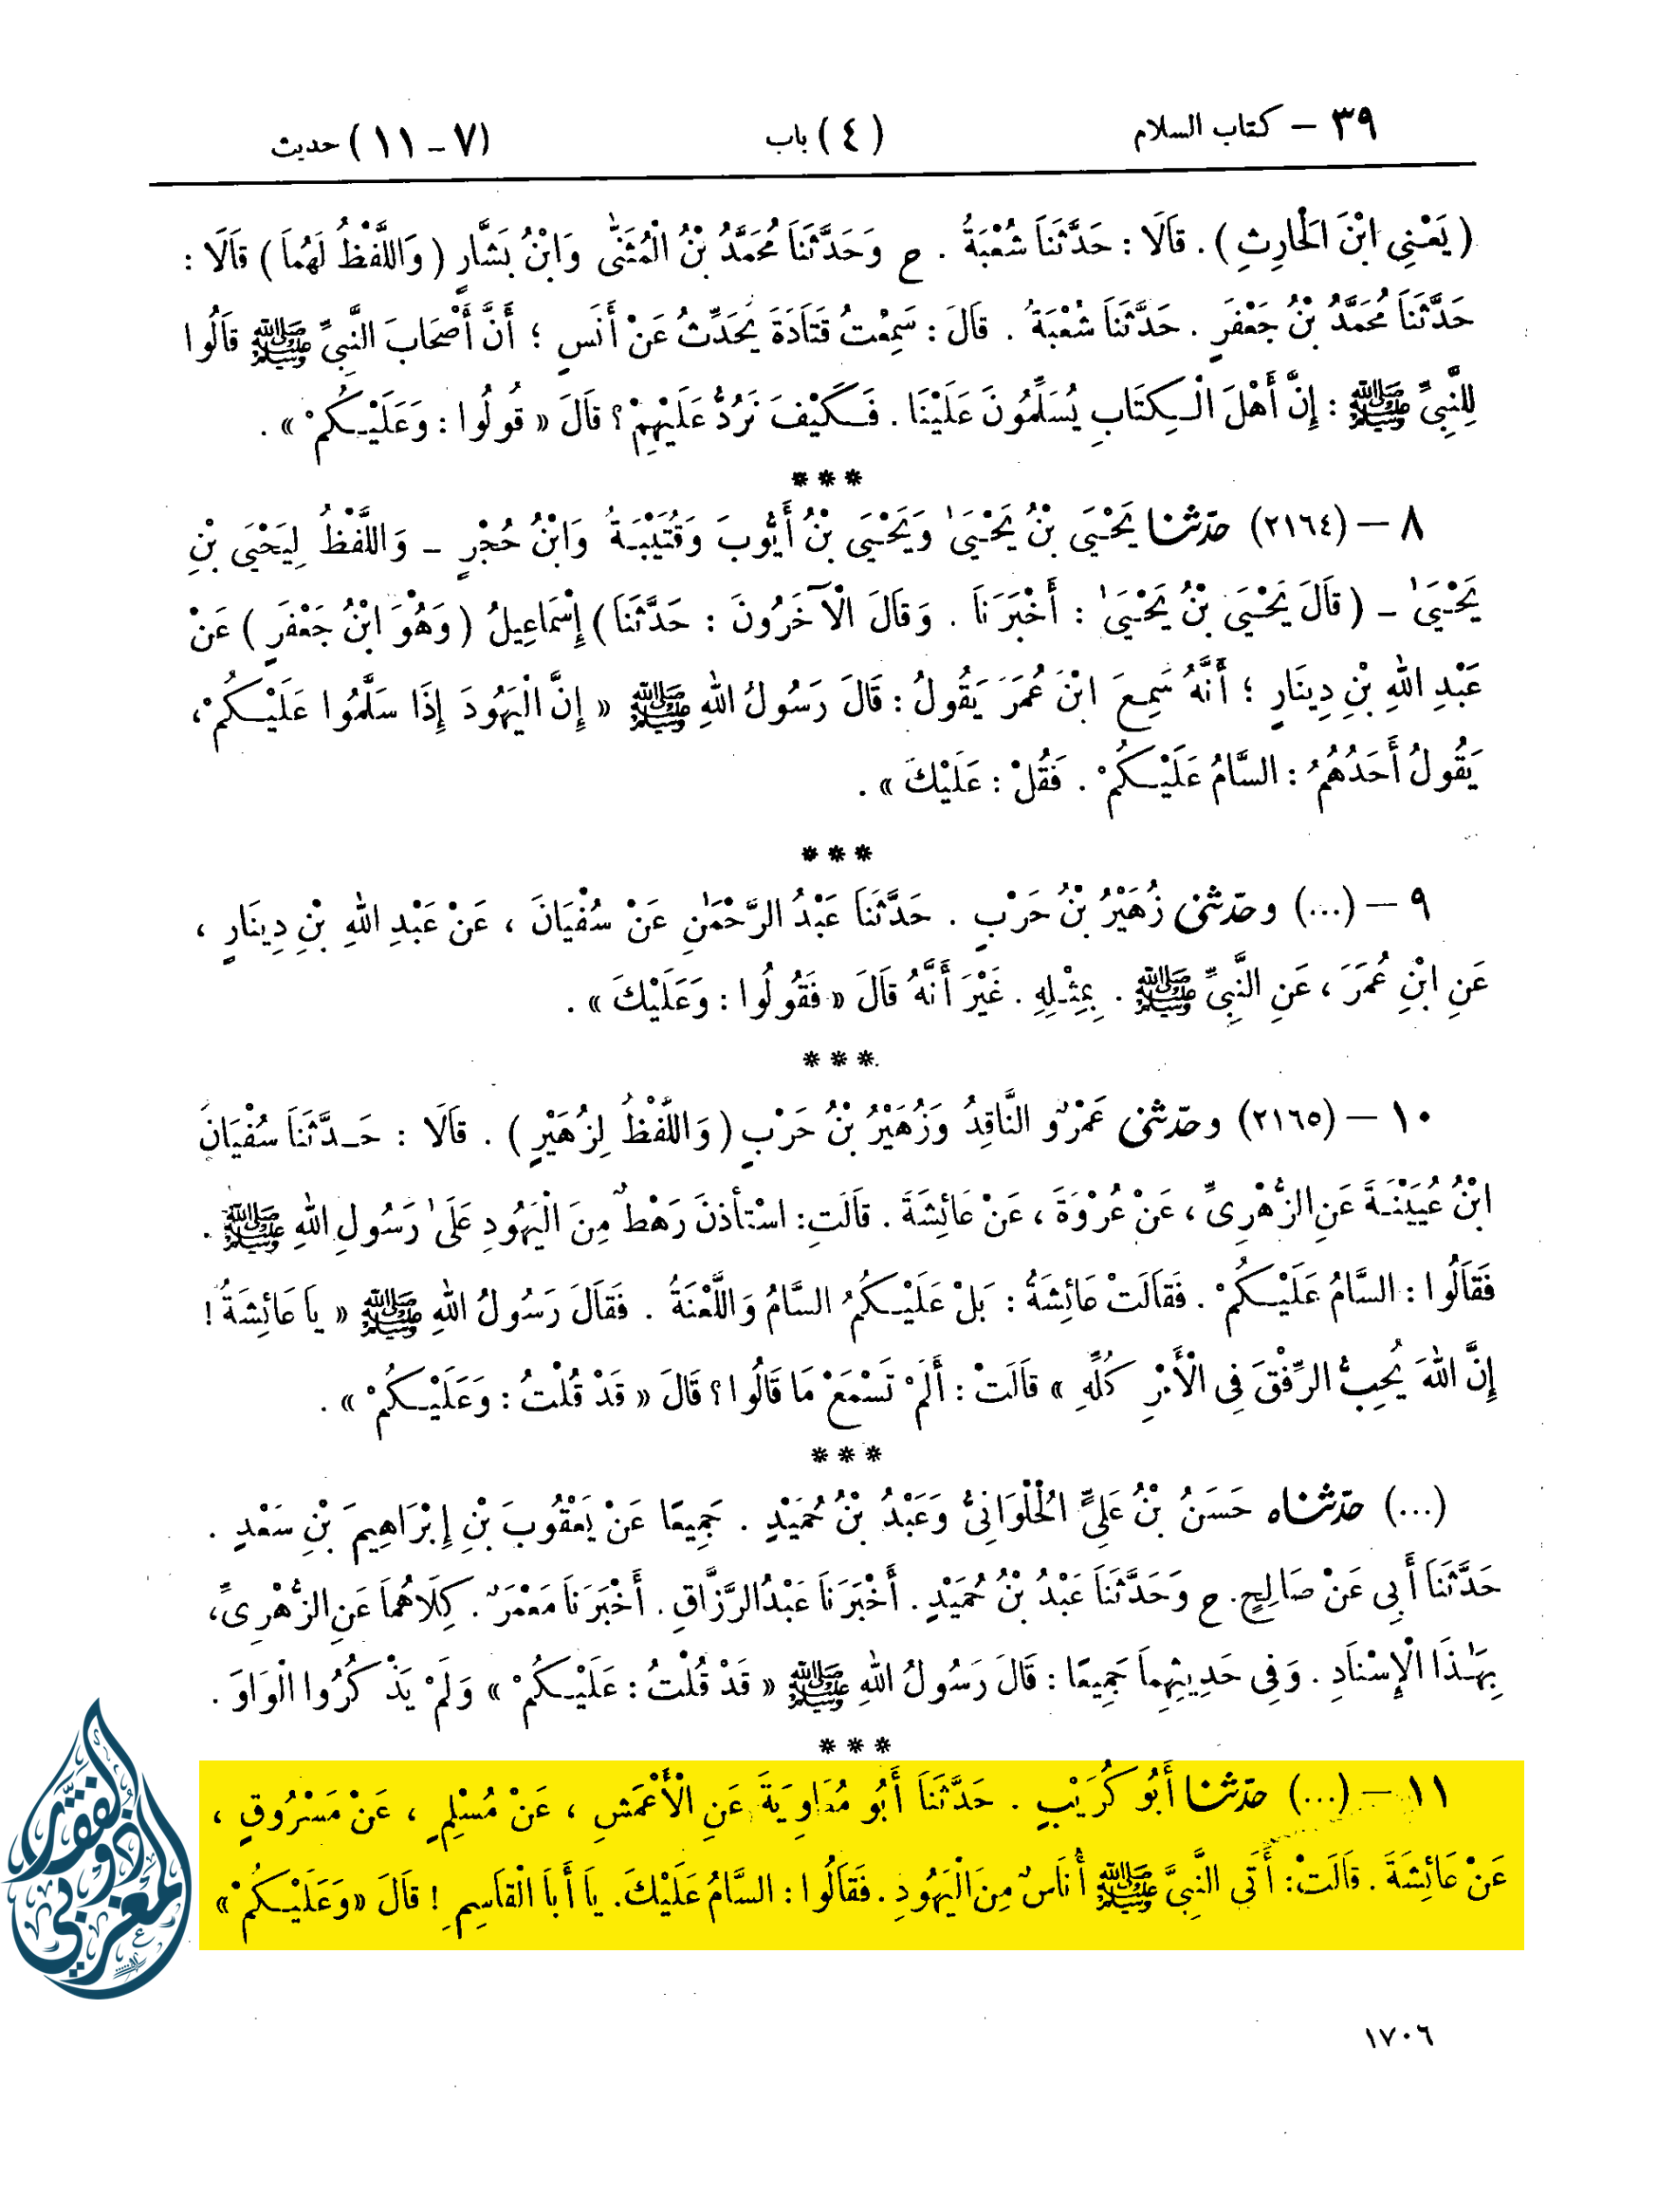 ٣٩ – كتاب السلام (٤) باب (٧ – ١١) حديث
( يَعْنِى ابْنَ الْحَارِثِ ) . قَالَا : حَدَّثَنَا شُعْبَةُ . ح وَحَدَّثَنَا مُحَمَّدُ بْنُ الْمُثَنَّىٰ وَابْنُ بَشَّارٍ ( وَاللَّفْظُ لَهُمَا ) قَالَا :
حَدَّثَنَا مُحَمَّدُ بْنُ جَعْفَرٍ . حَدَّثَنَا شُعْبَةُ . قَالَ : سَمِعْتُ قَتَادَةَ يُحَدِّثُ عَنْ أَنَسٍ ؛ أَنَّ أَصْحَابَ النَّبِىِّ ﷺ قَالُوا
لِلنَّبِىِّ ﷺ : إِنَّ أَهْلَ الْكِتَابِ يُسَلِّمُونَ عَلَيْنَا . فَكَيْفَ نَرُدُّ عَلَيْهِمْ ؟ قَالَ « قُولُوا : وَعَلَيْكُمْ » .
***
٨ – (٢١٦٤) حدّثنا يَحْيَى بْنُ يَحْيَىٰ وَيَحْيَى بْنُ أَيُّوبَ وَقُتَيْبَةُ وَابْنُ حُجْرٍ – وَاللَّفْظُ لِيَحْيَى بْنِ
يَحْيَىٰ – ( قَالَ يَحْيَى بْنُ يَحْيَىٰ : أَخْبَرَنَا . وَقَالَ الْآخَرُونَ : حَدَّثَنَا ) إِسْمَاعِيلُ ( وَهُوَ ابْنُ جَعْفَرٍ ) عَنْ
عَبْدِ اللهِ بْنِ دِينَارٍ ؛ أَنَّهُ سَمِعَ ابْنَ عُمَرَ يَقُولُ : قَالَ رَسُولُ اللهِ ﷺ « إِنَّ الْيَهُودَ إِذَا سَلَّمُوا عَلَيْكُمْ ،
يَقُولُ أَحَدُهُمُ : السَّامُ عَلَيْكُمْ . فَقُلْ : عَلَيْكَ » .
***
٩ – (...) وحدّثنى زُهَيْرُ بْنُ حَرْبٍ . حَدَّثَنَا عَبْدُ الرَّحْمٰنِ عَنْ سُفْيَانَ ، عَنْ عَبْدِ اللهِ بْنِ دِينَارٍ ،
عَنِ ابْنِ عُمَرَ ، عَنِ النَّبِىِّ ﷺ . بِمِثْلِهِ . غَيْرَ أَنَّهُ قَالَ « فَقُولُوا : وَعَلَيْكَ » .
***
١٠ – (٢١٦٥) وحدّثنى عَمْرٌو النَّاقِدُ وَزُهَيْرُ بْنُ حَرْبٍ ( وَاللَّفْظُ لِزُهَيْرٍ ) . قَالَا : حَدَّثَنَا سُفْيَانُ
ابْنُ عُيَيْنَةَ عَنِ الزُّهْرِىِّ ، عَنْ عُرْوَةَ ، عَنْ عَائِشَةَ . قَالَتِ : اسْتَأْذَنَ رَهْطٌ مِنَ الْيَهُودِ عَلَىٰ رَسُولِ اللهِ ﷺ .
فَقَالُوا : السَّامُ عَلَيْكُمْ . فَقَالَتْ عَائِشَةُ : بَلْ عَلَيْكُمُ السَّامُ وَاللَّعْنَةُ . فَقَالَ رَسُولُ اللهِ ﷺ « يَا عَائِشَةُ !
إِنَّ اللهَ يُحِبُّ الرِّفْقَ فِى الْأَمْرِ كُلِّهِ » قَالَتْ : أَلَمْ تَسْمَعْ مَا قَالُوا ؟ قَالَ « قَدْ قُلْتُ : وَعَلَيْكُمْ » .
***
(...) حدّثناه حَسَنُ بْنُ عَلِىٍّ الْحُلْوَانِىُّ وَعَبْدُ بْنُ حُمَيْدٍ . جَمِيعًا عَنْ يَعْقُوبَ بْنِ إِبْرَاهِيمَ بْنِ سَعْدٍ .
حَدَّثَنَا أَبِى عَنْ صَالِحٍ . ح وَحَدَّثَنَا عَبْدُ بْنُ حُمَيْدٍ . أَخْبَرَنَا عَبْدُ الرَّزَّاقِ . أَخْبَرَنَا مَعْمَرٌ . كِلَاهُمَا عَنِ الزُّهْرِىِّ ،
بِهَٰذَا الْإِسْنَادِ . وَفِى حَدِيثِهِمَا جَمِيعًا : قَالَ رَسُولُ اللهِ ﷺ « قَدْ قُلْتُ : عَلَيْكُمْ » وَلَمْ يَذْكُرُوا الْوَاوَ .
***
١١ – (...) حدّثنا أَبُو كُرَيْبٍ . حَدَّثَنَا أَبُو مُعَاوِيَةَ عَنِ الْأَعْمَشِ ، عَنْ مُسْلِمٍ ، عَنْ مَسْرُوقٍ ،
عَنْ عَائِشَةَ . قَالَتْ : أَتَى النَّبِىَّ ﷺ أُنَاسٌ مِنَ الْيَهُودِ . فَقَالُوا : السَّامُ عَلَيْكَ . يَا أَبَا الْقَاسِمِ ! قَالَ « وَعَلَيْكُمْ »
ذو الفقار
المغربي
١٧٠٦